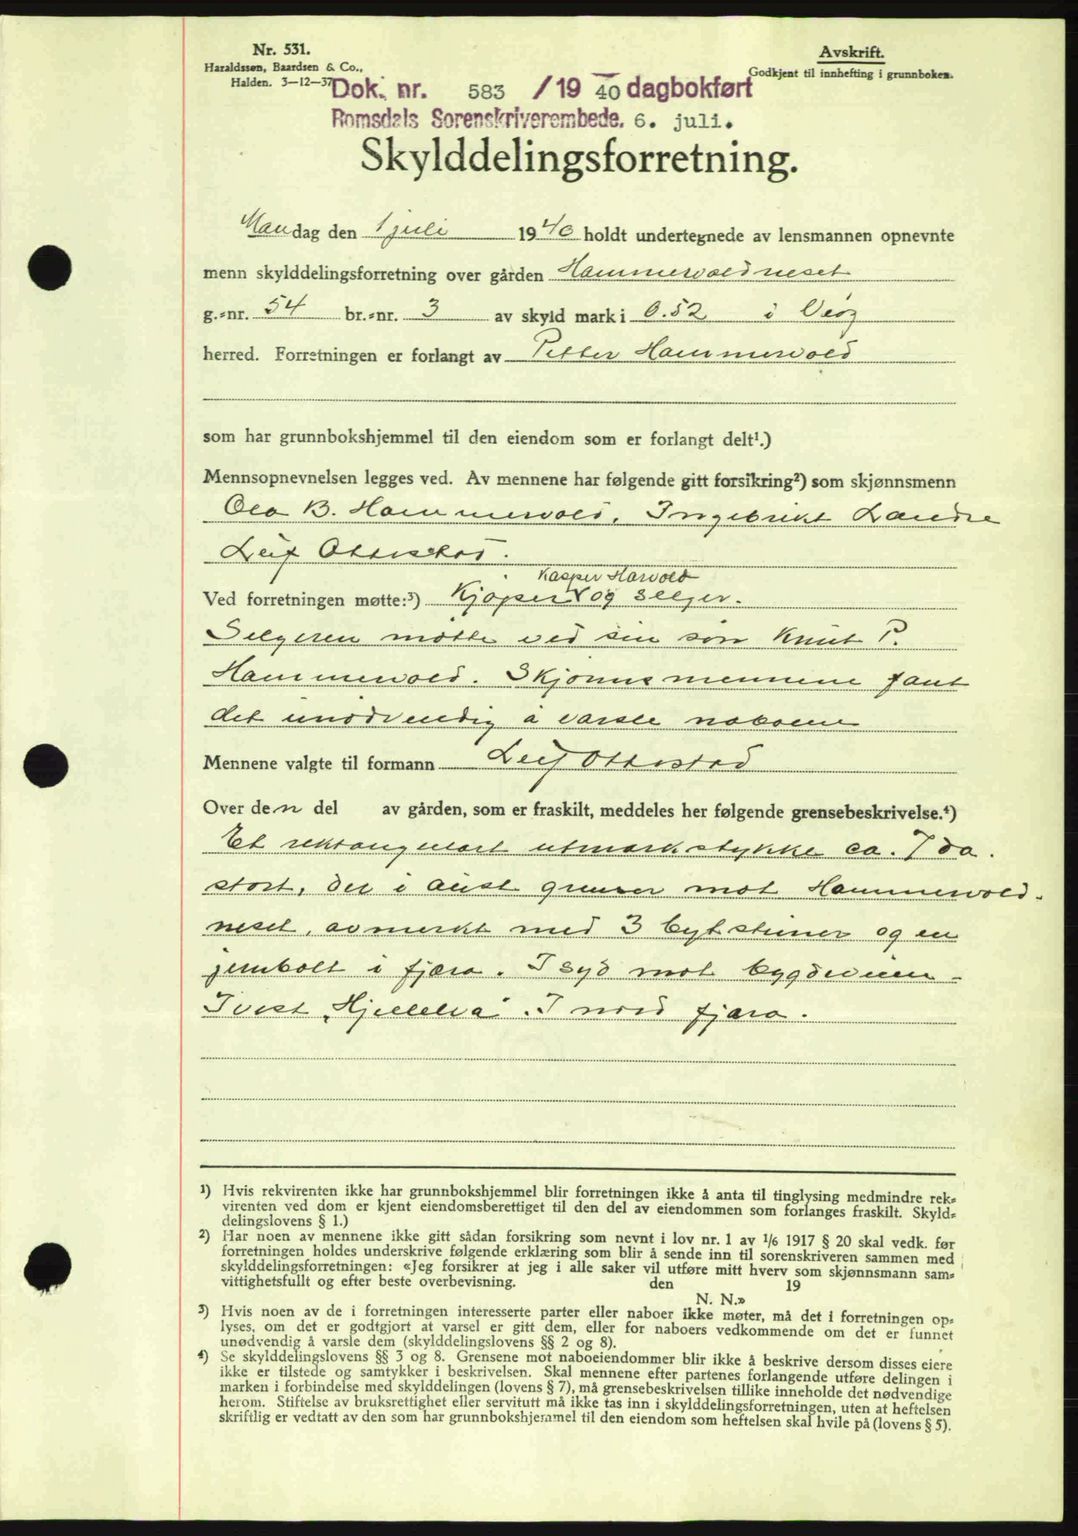 Nr. 531.
Haraldssen, Baardsen & Co.,
Halden. 3-12-37
Avskrift.
Godkjent til innhefting i grunnboken.
Dok. nr. 583 /19 40 dagbokført
Romsdals Sorenskriverembede. 6. juli.
Skylddelingsforretning.
Mandag den 1 juli 1940 holdt undertegnede av lensmannen opnevnte
menn skylddelingsforretning over gården Hammervoldneset
g.-nr. 54 br.-nr. 3 av skyld mark i 0.52 i Veøy
herred. Forretningen er forlangt av Petter Hammervold
som har grunnbokshjemmel til den eiendom som er forlangt delt¹.)
Mennsopnevnelsen legges ved. Av mennene har følgende gitt forsikring²) som skjønnsmenn
Ola B. Hammervold, Ingebrikt Landre
Leif Otterstad.
Kasper Harvold
Ved forretningen møtte:³) Kjøper V og selger.
Selgeren møtte ved sin søn Knut P.
Hammervold. Skjønnsmennene fant
det unødvendig å varsle naboene
Mennene valgte til formann Leif Otterstad
Over den del av gården, som er fraskilt, meddeles her følgende grensebeskrivelse.⁴)
Et rektangulært utmarkstykke ca. 7 da.
stort, det i aust grenser mot Hammervold-
neset, avmerkt med 3 bytsteiner og en
jernbolt i fjæra. I syd mot bygdeveien -
I vest „Hjellelva". I nord fjæra.
¹) Hvis rekvirenten ikke har grunnbokshjemmel blir forretningen ikke å anta til tinglysing medmindre rek-
virenten ved dom er kjent eiendomsberettiget til den del av eiendommen som forlanges fraskilt. Skyld-
delingslovens § 1.)
²) Har noen av mennene ikke gitt sådan forsikring som nevnt i lov nr. 1 av 1/6 1917 § 20 skal vedk. før
forretningen holdes underskrive følgende erklæring som blir å sende inn til sorenskriveren sammen med
skylddelingsforretningen: «Jeg forsikrer at jeg i alle saker vil utføre mitt hverv som skjønnsmann sam-
vittighetsfullt og efter beste overbevisning. den 19
N. N.»
³) Hvis noen av de i forretningen interesserte parter eller naboer ikke møter, må det i forretningen op-
lyses, om det er godtgjort at varsel er gitt dem, eller for naboers vedkommende om det er funnet
unødvendig å varsle dem (skylddelingslovens §§ 2 og 8).
⁴) Se skylddelingslovens §§ 3 og 8. Grensene mot naboeiendommer blir ikke å beskrive dersom disses eiere
ikke er tilstede og samtykker i beskrivelsen. Skal mennene efter partenes forlangende utføre delingen i
marken i forbindelse med skylddelingen (lovens § 7), må grensebeskrivelsen tillike inneholde det nødvendige
herom. Stiftelse av bruksrettighet eller servitutt må ikke tas inn i skylddelingsforretningen, uten at heftelsen
skriftlig er vedtatt av den som har grunnbokshjemmel til den eiendom som heftelsen skal hvile på (lovens § 5).